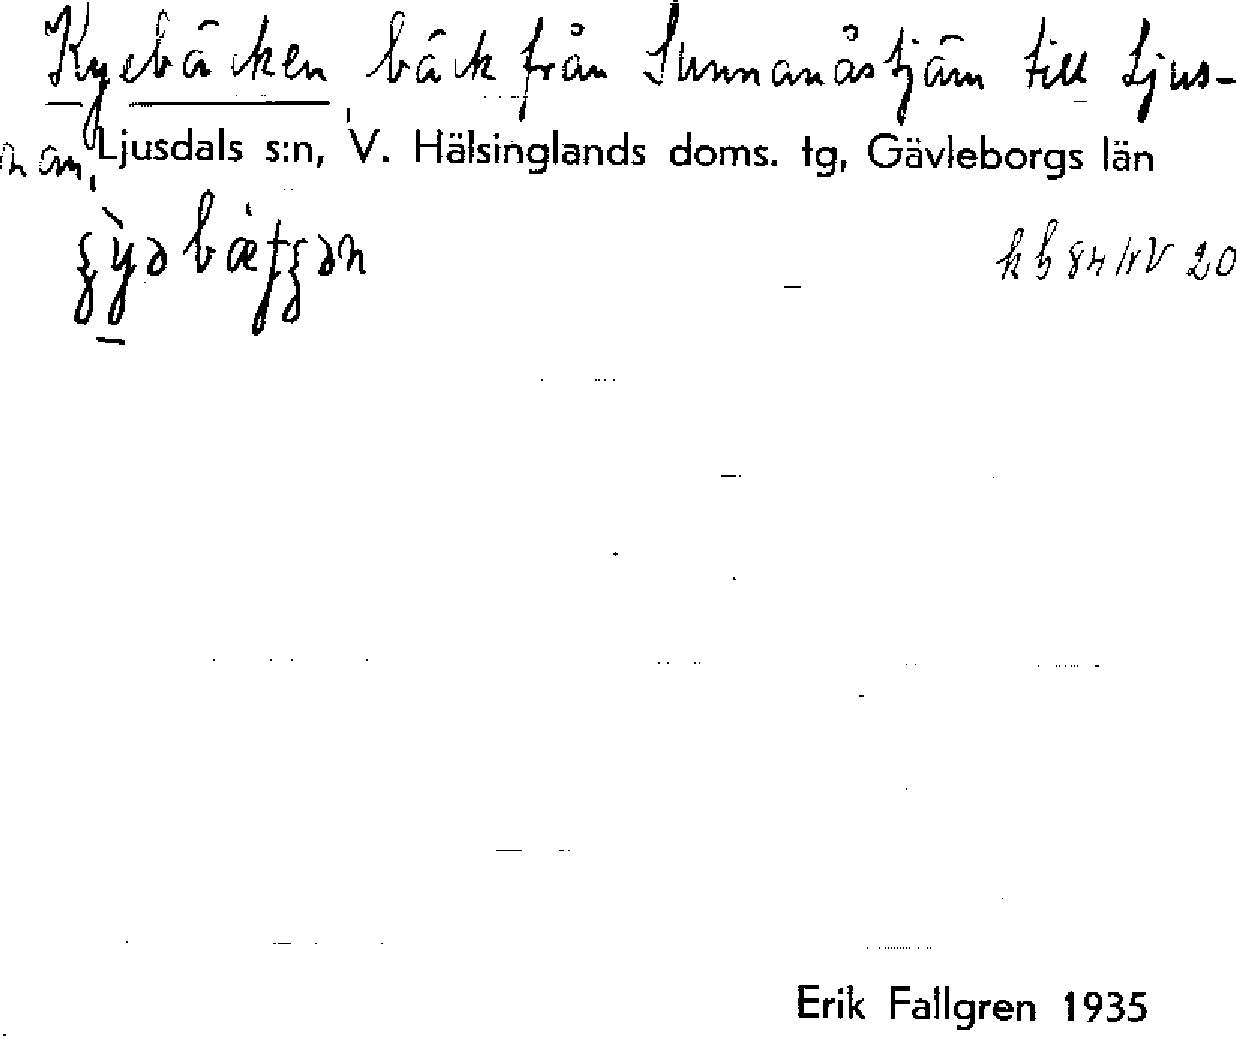 Kyebäcken bäck från Sunnanåstjärn till Ljus-
nan, Ljusdals s:n, V. Hälsinglands doms. tg, Gävleborgs län
kb 84 NV 20
Erik Fallgren 1935